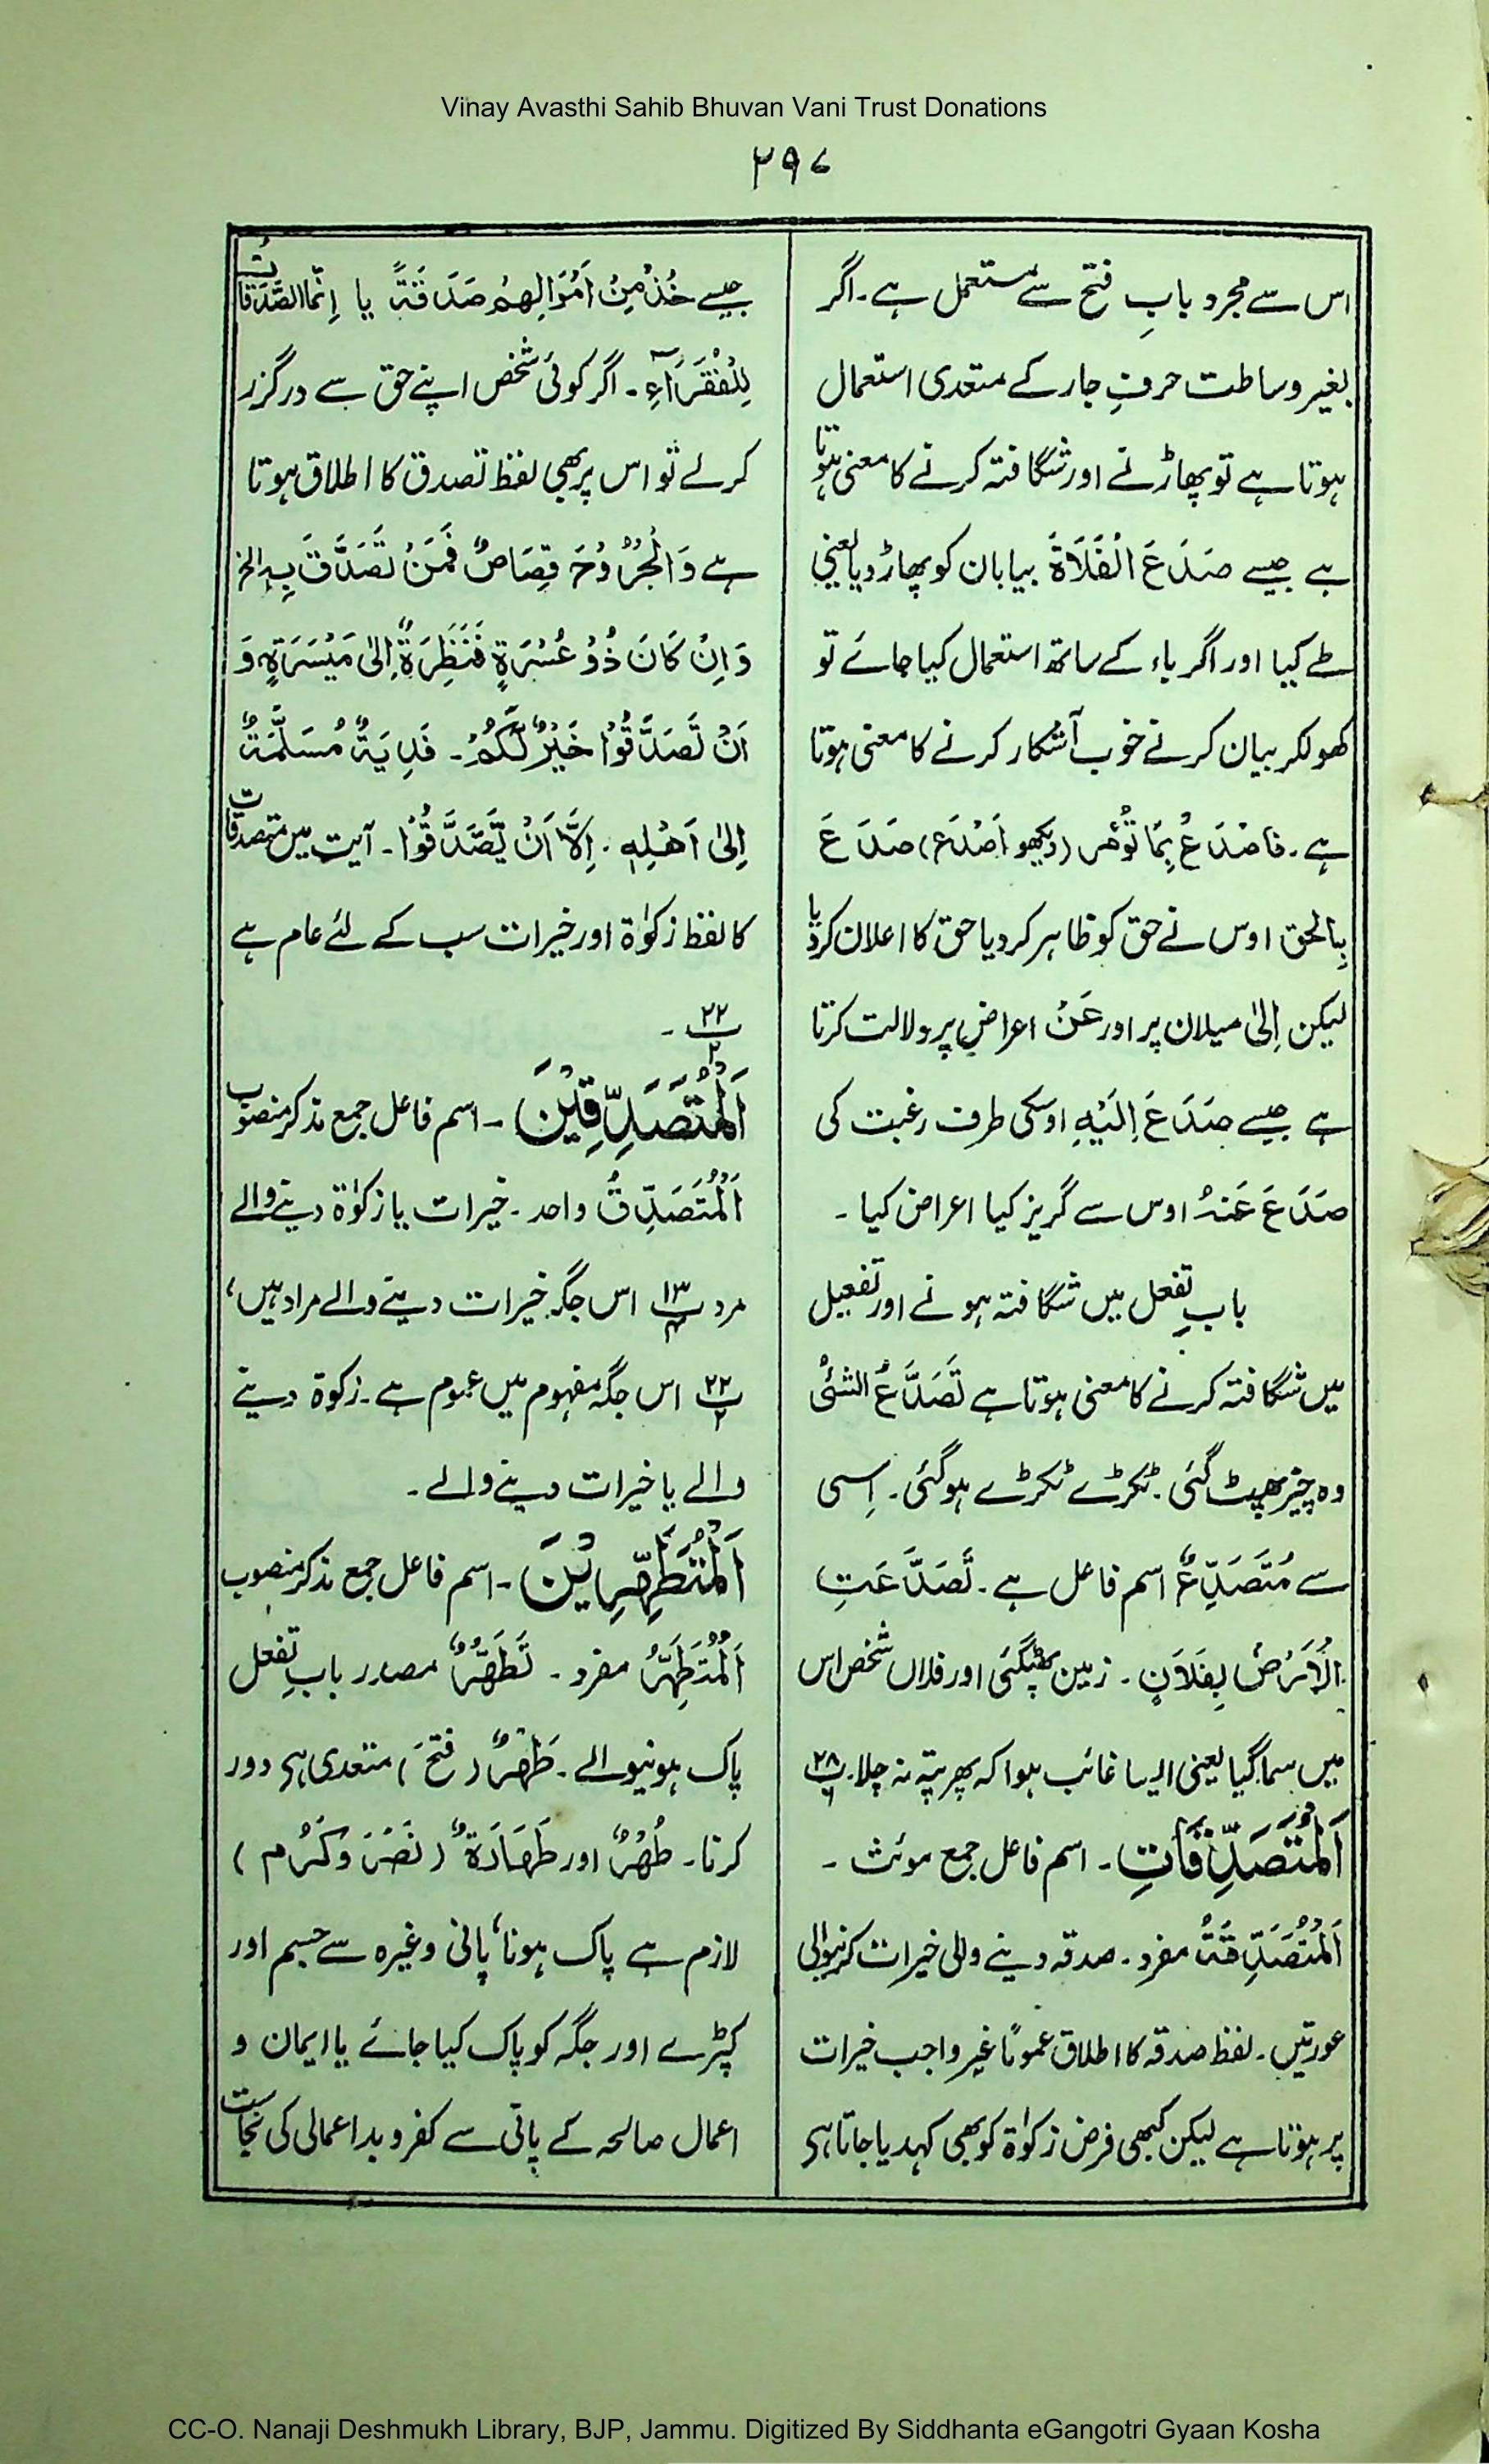 Vinay Avasthi Sahib Bhuvan Vani Trust Donations
۲۹۷
اس سے مجرد بابِ فتح سے مستعمل ہے۔ اگر
بغیر وساطت حرفِ جار کے متعدی استعمال
ہوتا ہے تو پھاڑنے اور شگافتہ کرنے کا معنی ہوتا
ہے جیسے صَدَعَ الْفَلَاةَ بیابان کو پھاڑ دیا یعنی
طے کیا اور اگر باء کے ساتھ استعمال کیا جائے تو
کھولکر بیان کرنے خوب آشکار کرنے کا معنی ہوتا
ہے۔ فاصْدَعْ بِمَا تُؤْمَر (دیکھو اَصْدَع) صَدَعَ
بِالحق اوس نے حق کو ظاہر کر دیا حق کا اعلان کر دیا
لیکن اِلیٰ میلان پر اور عَنْ اعراض پر دلالت کرتا
ہے جیسے صَدَعَ اِلَیْهِ اوسکی طرف رغبت کی
صَدَعَ عَنْهُ اوس سے گریز کیا اعراض کیا۔
بابِ تفعل میں شگافتہ ہونے اور تفعیل
میں شگافتہ کرنے کا معنی ہوتا ہے تَصَدَّعَ الشئُ
وہ چیز پھٹ گئی۔ ٹکڑے ٹکڑے ہوگئی۔ اِسی
سے مُتَصَدِّعٌ اسم فاعل ہے۔ تَصَدَّعَتِ
الْاَرْضُ بِفَلَانٍ۔ زمین پھٹگئی اور فلاں شخص اس
میں سما گیا یعنی ایسا غائب ہوا کہ پھر پتہ نہ چلا۔ پ ۲۸ / ۶
اَلْمُتَصَدِّقَاتِ۔ اسم فاعل جمع مونث۔
اَلْمُتَصَدِّقَةُ مفرد۔ صدقہ دینے والی خیرات کرنیوالی
عورتیں۔ لفظ صدقہ کا اطلاق عموماً غیر واجب خیرات
پر ہوتا ہے لیکن کبھی فرض زکوٰۃ کو بھی کہدیا جاتا ہی
جیسے خُذْ مِنْ اَمْوَالِهِمْ صَدَقَةً یا اِنَّمَا الصَّدَقَاتُ
لِلْفُقَرَآءِ۔ اگر کوئی شخص اپنے حق سے درگزر
کرلے تو اس پر بھی لفظ تصدق کا اطلاق ہوتا
ہے وَالْجُرُوْحَ قِصَاصٌ فَمَنْ تَصَدَّقَ بِهٖ الخ
وَاِنْ كَانَ ذُوْ عُسْرَةٍ فَنَظِرَةٌ اِلیٰ مَيْسَرَةٍ وَ
اَنْ تَصَدَّقُوْا خَيْرٌ لَّكُمْ۔ فَدِيَةٌ مُسَلَّمَةٌ
اِلیٰ اَهْلِهٖ۔ اِلَّا اَنْ يَّصَّدَّقُوْا۔ آیت میں متصدقات
کا لفظ زکوٰۃ اور خیرات سب کے لئے عام ہے
پ ۲۲ / ۲۔
اَلْمُتَصَدِّقِيْنَ۔ اسم فاعل جمع مذکر منصوب
اَلْمُتَصَدِّقُ واحد۔ خیرات یا زکوٰۃ دینے والے
مرد پ ۱۳ / ۴ اس جگہ خیرات دینے والے مراد ہیں،
پ ۲۲ / ۲ اس جگہ مفہوم میں عموم ہے۔ زکوۃ دینے
والے یا خیرات دینے والے۔
اَلْمُتَطَهِّرِيْنَ۔ اسم فاعل جمع مذکر منصوب
اَلْمُتَطَهِّرُ مفرد۔ تَطَهُّرٌ مصدر بابِ تفعل
پاک ہونیوالے۔ طَهْرٌ (فتحَ) متعدی ہی دور
کرنا۔ طُهْرٌ اور طَهَارَةٌ (نَصَرَ وَكَرُم)
لازم ہے پاک ہونا، پانی وغیرہ سے جسم اور
کپڑے اور جگہ کو پاک کیا جائے یا ایمان و
اعمال صالحہ کے پانی سے کفر و بد اعمالی کی نجاست
CC-O. Nanaji Deshmukh Library, BJP, Jammu. Digitized By Siddhanta eGangotri Gyaan Kosha